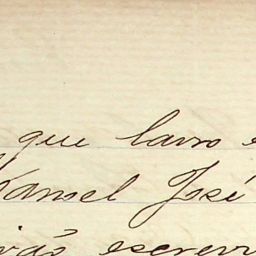 que lavro e
Manoel José
ivão escrevi